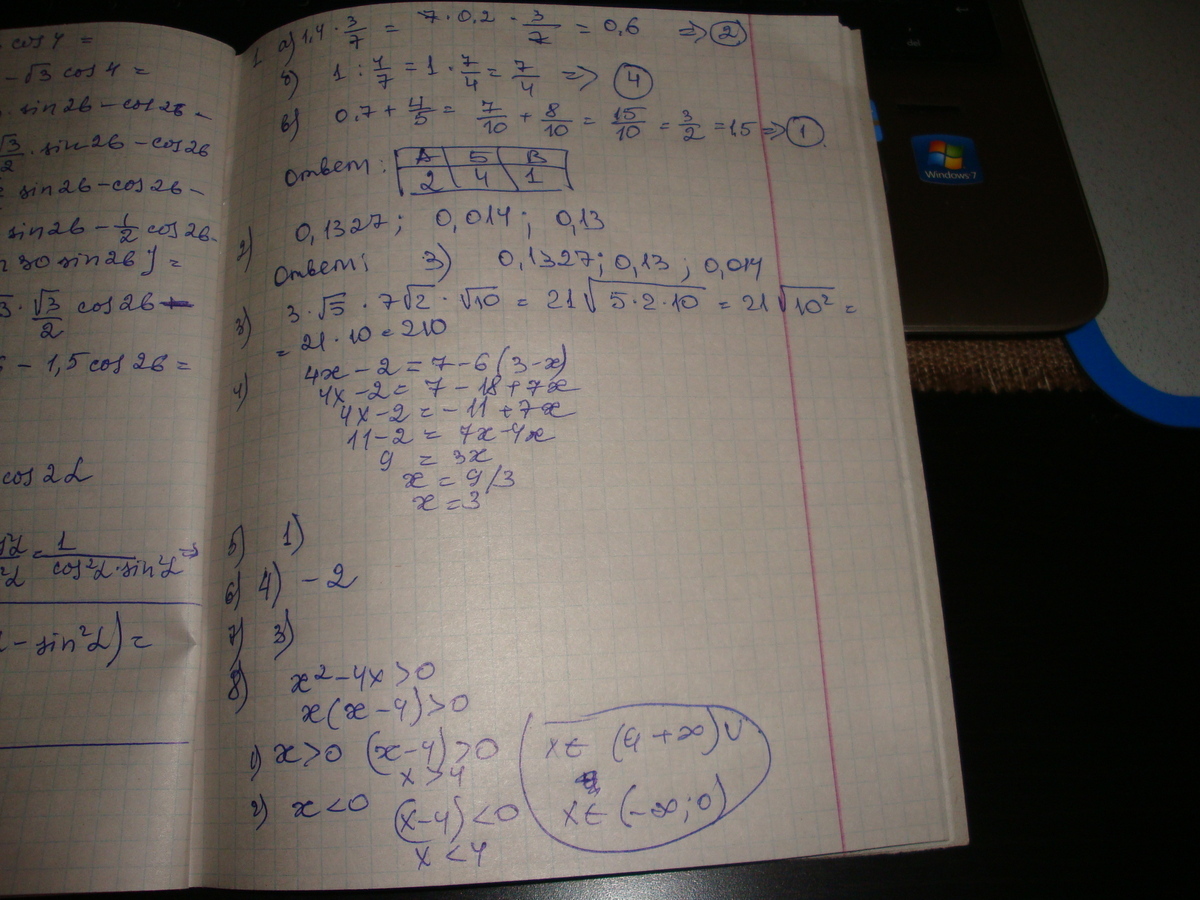 cos 4 =
- √3 cos 4 =
sin 2b - cos 2b -
√3/2 · sin 2b - cos 2b
sin 2b - cos 2b -
sin 2b - 1/2 cos 2b -
30 sin 2b) =
· √3/2 cos 2b
- 1,5 cos 2b =
cos 2L
= 1/(cos²L · sin²L) =>
- sin²L) =
1 а) 1,4 · 3/7 = 7 · 0,2 · 3/7 = 0,6 => 2
б) 1 : 4/7 = 1 · 7/4 = 7/4 => 4
в) 0,7 + 4/5 = 7/10 + 8/10 = 15/10 = 3/2 = 1,5 => 1
ответ: А Б В
2 4 1
2) 0,1327; 0,014; 0,13
ответ: 3) 0,1327; 0,13; 0,014
3) 3 · √5 · 7√2 · √10 = 21√(5·2·10) = 21√10² =
= 21 · 10 = 210
4) 4x - 2 = 7 - 6(3-x)
4x - 2 = 7 - 18 + 7x
4x - 2 = -11 + 7x
11 - 2 = 7x - 4x
9 = 3x
x = 9/3
x = 3
5) 1)
6) 4) -2
7) 3)
8) x² - 4x > 0
x(x-4) > 0
1) x > 0 (x-4) > 0
x > 4
2) x < 0 (x-4) < 0
x < 4
x ∈ (4 +∞) ∪
x ∈ (-∞; 0)
Windows 7